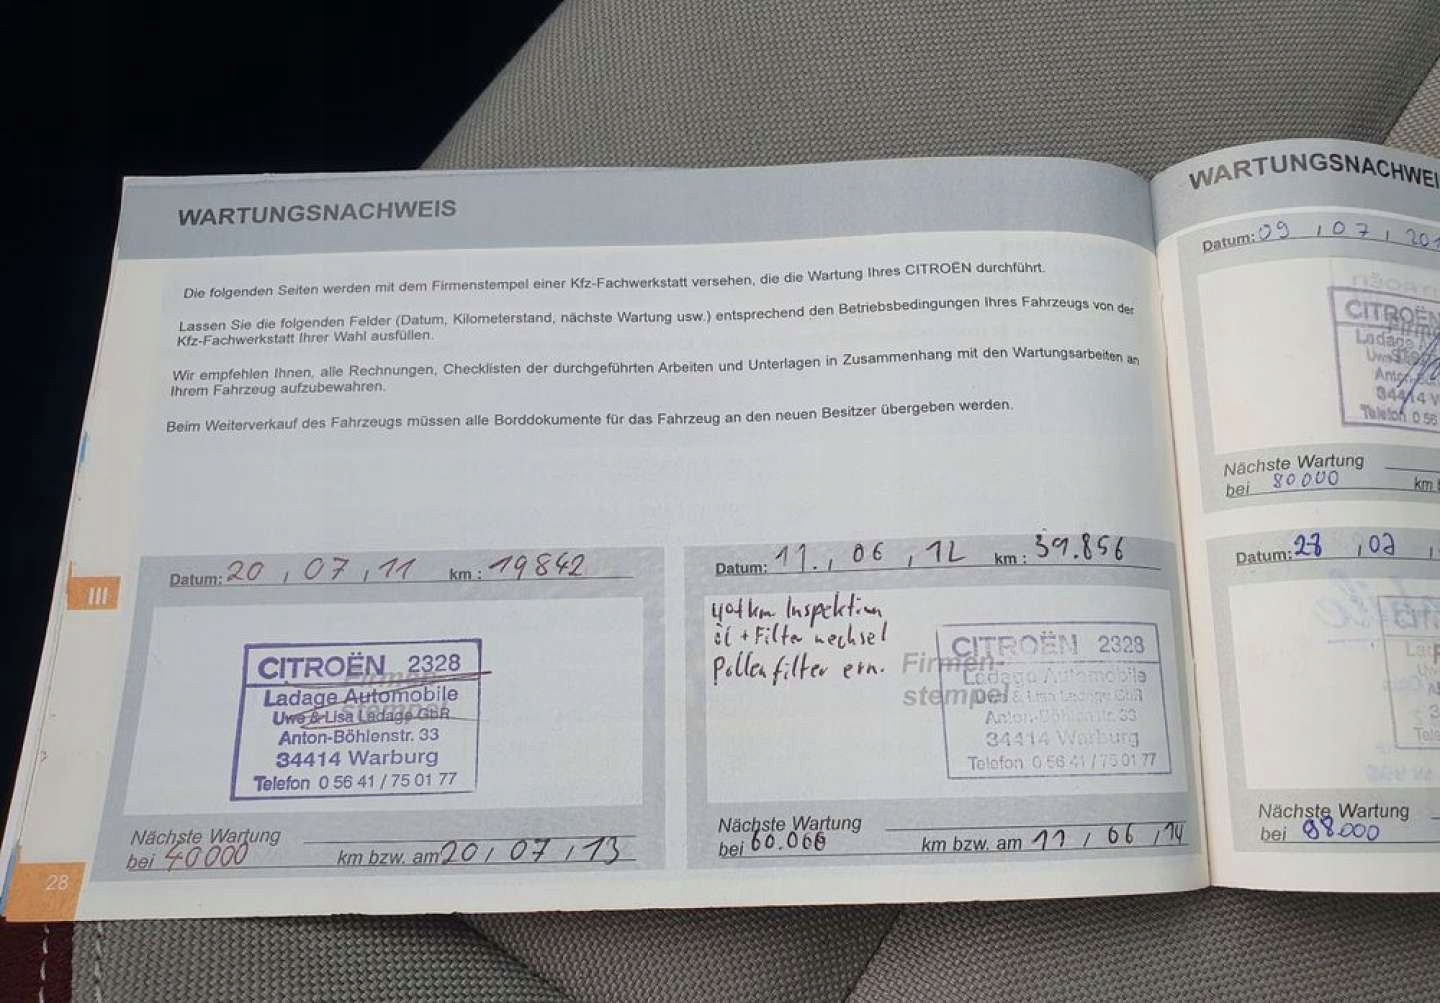 WARTUNGSNACHWEIS
Die folgenden Seiten werden mit dem Firmenstempel einer Kfz-Fachwerkstatt versehen, die die Wartung Ihres CITROËN durchführt.
Lassen Sie die folgenden Felder (Datum, Kilometerstand, nächste Wartung usw.) entsprechend den Betriebsbedingungen Ihres Fahrzeugs von der
Kfz-Fachwerkstatt Ihrer Wahl ausfüllen.
Wir empfehlen Ihnen, alle Rechnungen, Checklisten der durchgeführten Arbeiten und Unterlagen in Zusammenhang mit den Wartungsarbeiten an
Ihrem Fahrzeug aufzubewahren.
Beim Weiterverkauf des Fahrzeugs müssen alle Borddokumente für das Fahrzeug an den neuen Besitzer übergeben werden.
Datum: 20, 07, 11 km: 19842
Firmen-
stempel
CITROËN 2328
Ladage Automobile
Uwe & Lisa Ladage GbR
Anton-Böhlenstr. 33
34414 Warburg
Telefon 0 56 41 / 75 01 77
Nächste Wartung
bei 40000 km bzw. am 20, 07, 13
Datum: 11., 06, 12 km: 39.856
Inspektion
öl + Filter wechsel
Pollenfilter ern.
Firmen-
stempel
CITROËN 2328
Ladage Automobile
& Lisa Ladage GbR
Anton-Böhlenstr. 33
34414 Warburg
Telefon 0 56 41 / 75 01 77
Nächste Wartung
bei 60.000 km bzw. am 11, 06, 14
III
28
WARTUNGSNACHWEI
Datum: 09, 07, 201
CITROËN
Ladage
34414 W
Telefon 0 56
Nächste Wartung
bei 80000 km
Datum:
Nächste Wartung
bei 88.000